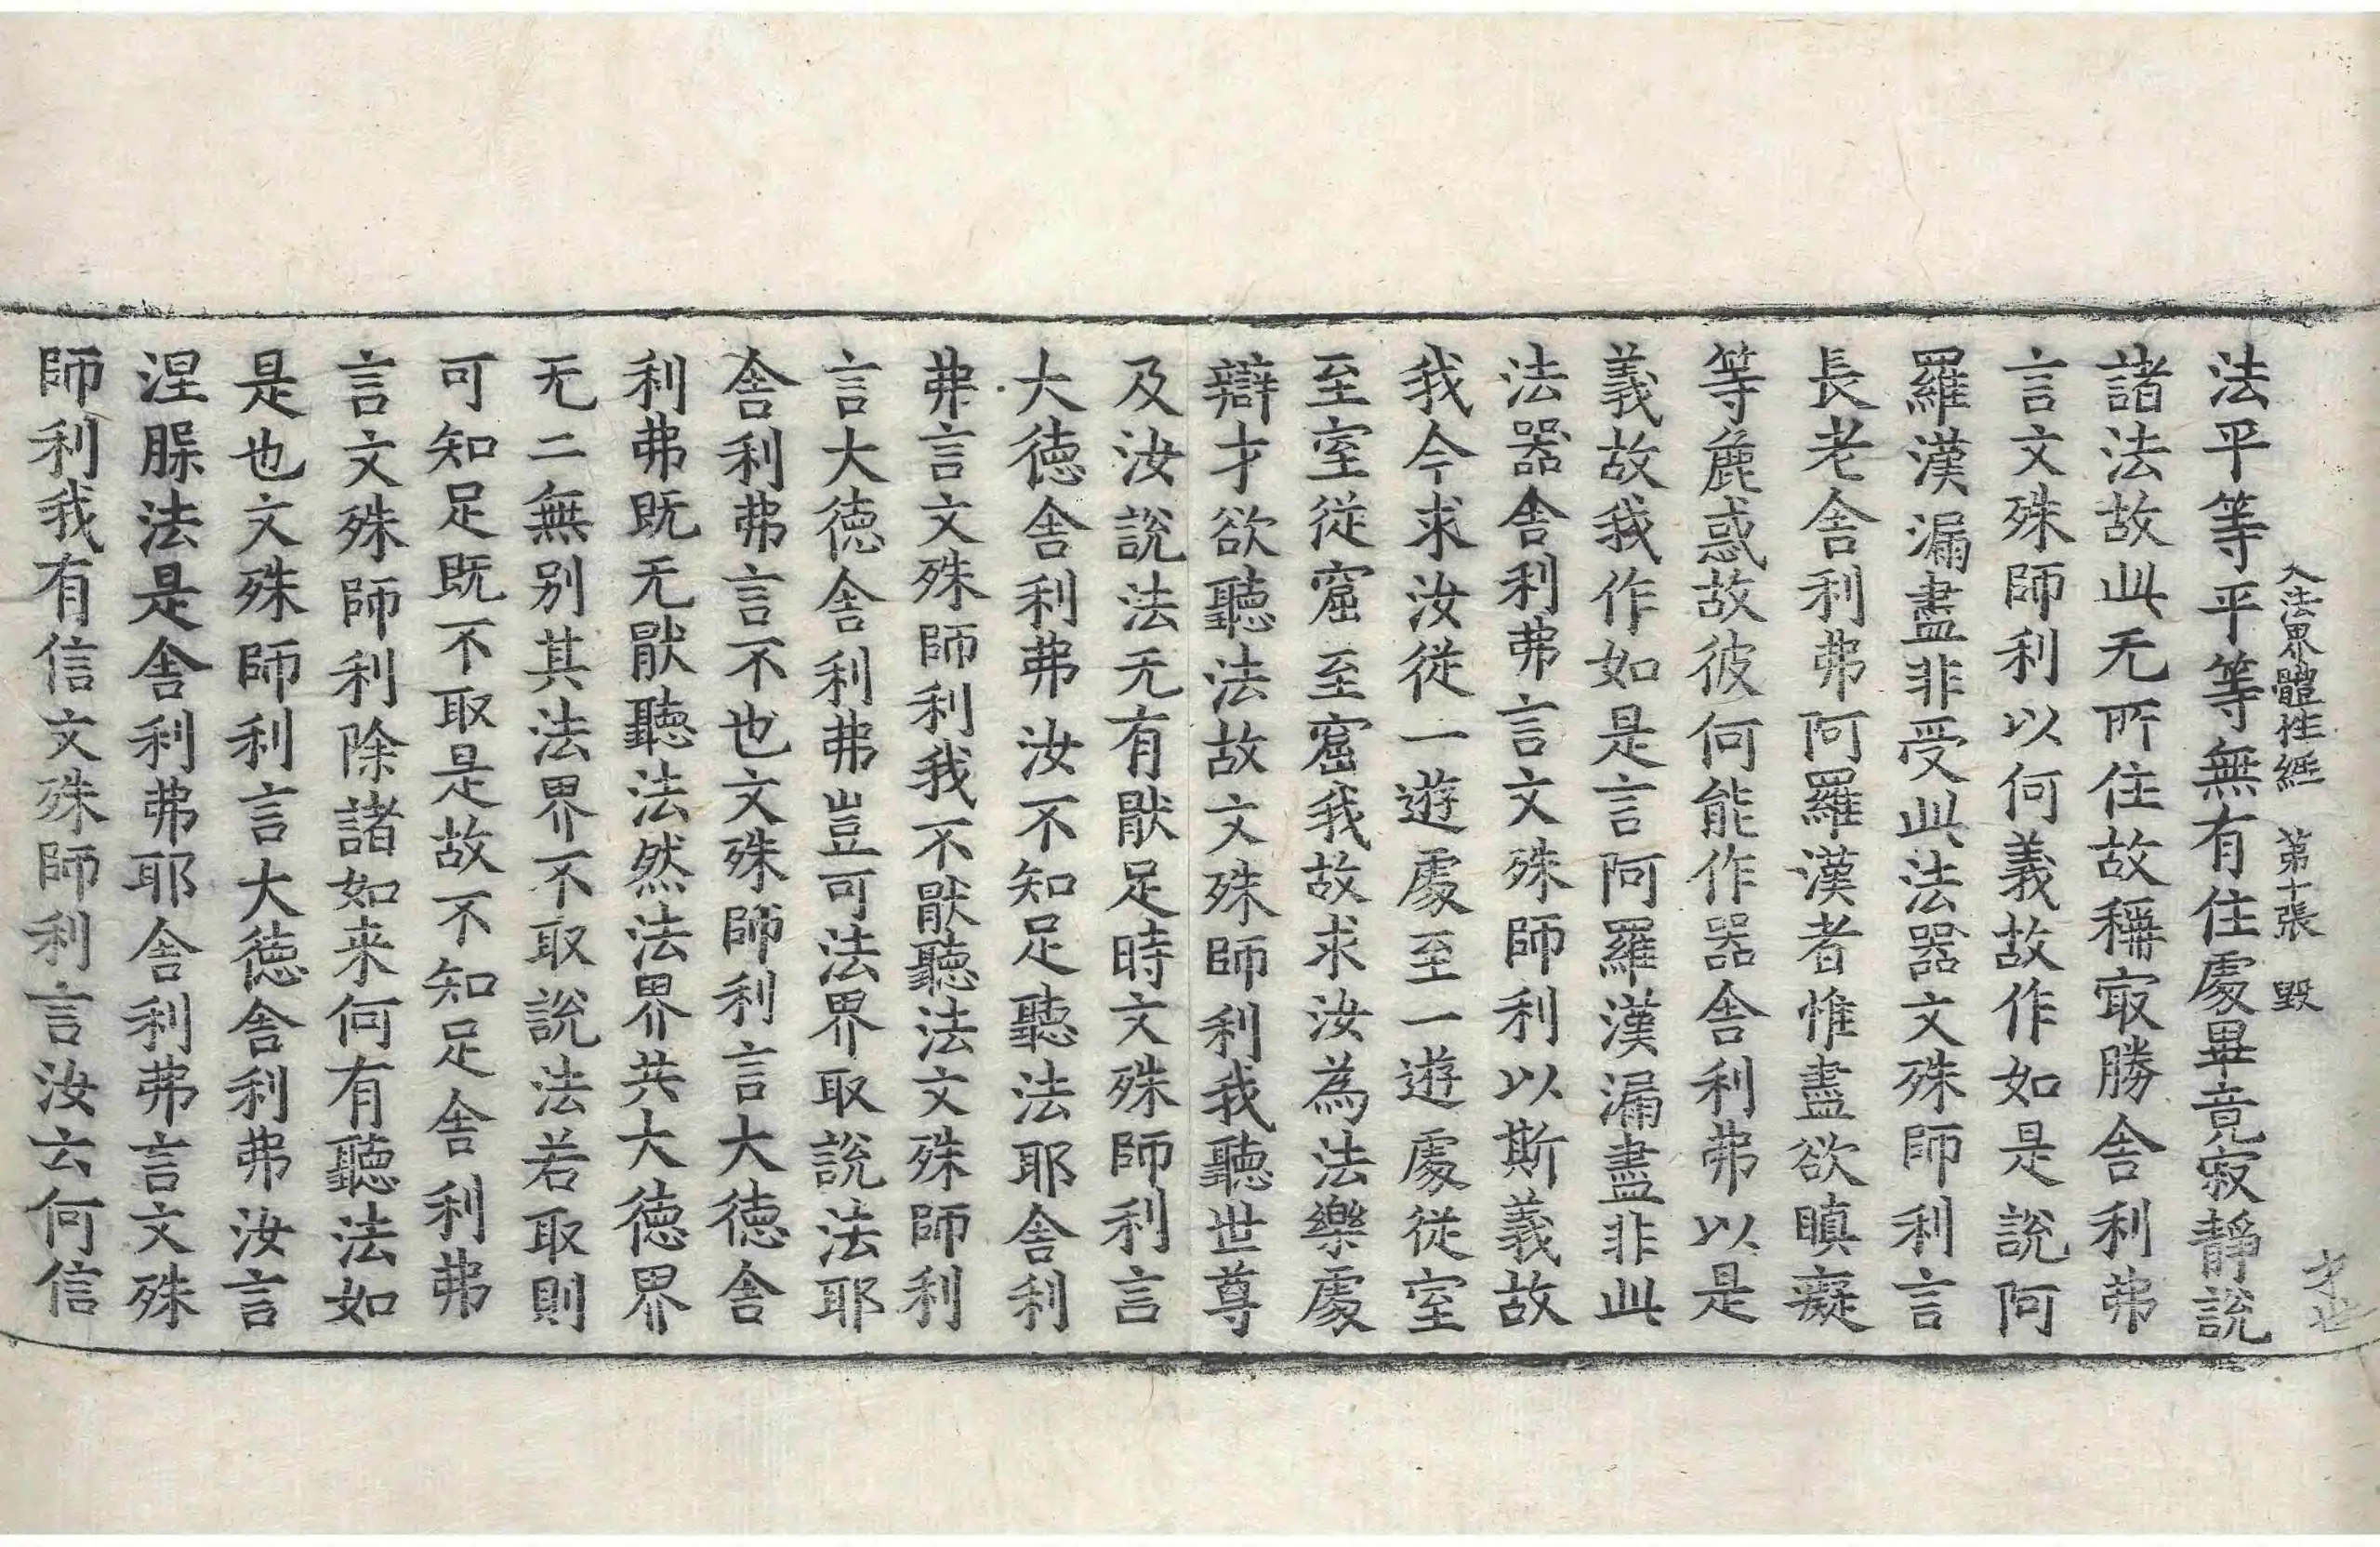 入法界體性経 第十張 毀
法平等平等無有住處畢竟寂靜說
諸法故此无所住故稱㝡勝舎利弗
言文殊師利以何義故作如是說阿
羅漢漏盡非受此法器文殊師利言
長老舎利弗阿羅漢者惟盡欲瞋癡
等麁惑故彼何能作器舎利弗以是
義故我作如是言阿羅漢漏盡非此
法器舎利弗言文殊師利以斯義故
我今求汝從一遊處至一遊處從室
至室從窟至窟我故求汝為法樂處
辯才欲聽法故文殊師利我聽世尊
及汝說法无有猒足時文殊師利言
大徳舎利弗汝不知足聽法耶舎利
弗言文殊師利我不猒聽法文殊師利
言大徳舎利弗豈可法界取說法耶
舎利弗言不也文殊師利言大徳舎
利弗既无猒聽法然法界共大徳界
无二無别其法界不取說法若取則
可知足既不取是故不知足舎利弗
言文殊師利除諸如来何有聽法如
是也文殊師利言大徳舎利弗汝言
涅槃法是舎利弗耶舎利弗言文殊
師利我有信文殊師利言汝云何信